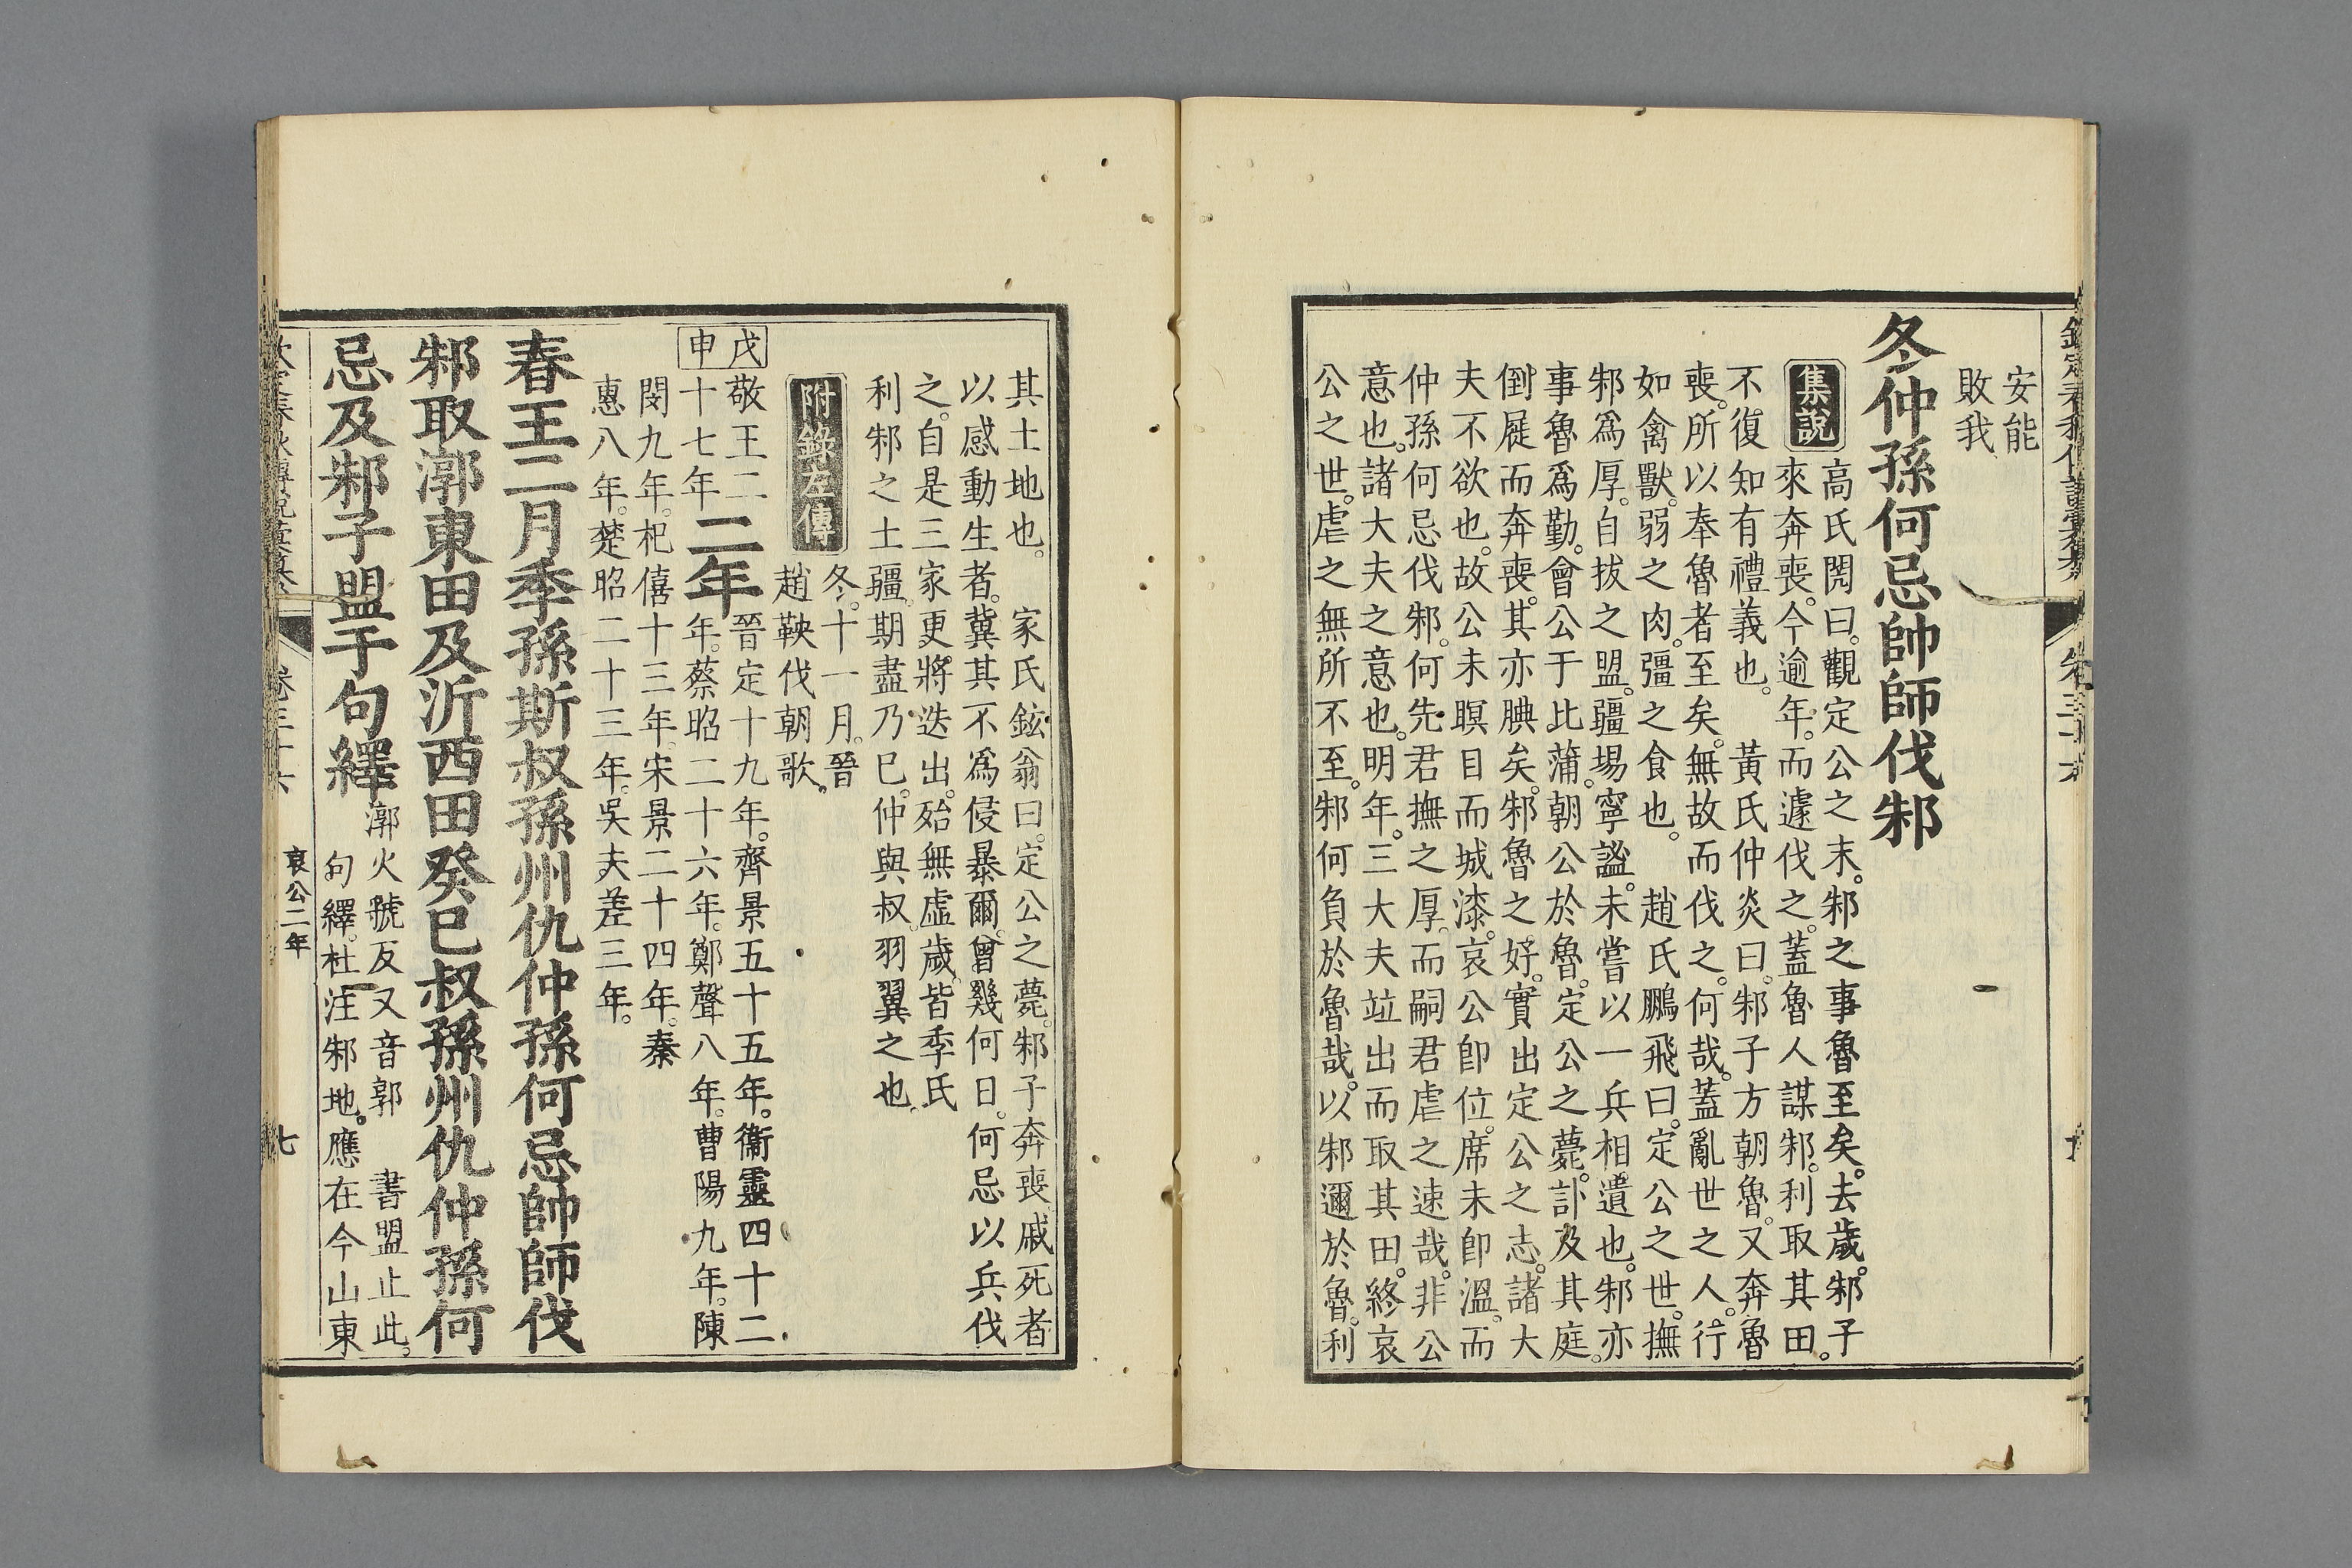 安能
敗我
冬仲孫何忌帥師伐邾
集說
高氏閌曰。觀定公之末。邾之事魯至矣。去歲。邾子
來奔喪。今逾年。而遽伐之。蓋魯人謀邾。利取其田。
不復知有禮義也。黃氏仲炎曰。邾子方朝魯。又奔魯
喪。所以奉魯者至矣。無故而伐之。何哉。蓋亂世之人。行
如禽獸。弱之肉。彊之食也。趙氏鵬飛曰。定公之世。撫
邾爲厚。自拔之盟。疆埸寧謐。未嘗以一兵相遺也。邾亦
事魯爲勤。會公于比蒲。朝公於魯。定公之薨。訃及其庭。
倒屣而奔喪。其亦腆矣。邾魯之好。實出定公之志。諸大
夫不欲也。故公未瞑目而城漆。哀公卽位。席未卽溫。而
仲孫何忌伐邾。何先君撫之厚。而嗣君虐之速哉。非公
意也。諸大夫之意也。明年。三大夫竝出而取其田。終哀
公之世。虐之無所不至。邾何負於魯哉。以邾邇於魯。利
其土地也。家氏鉉翁曰。定公之薨。邾子奔喪。戚死者
以感動生者。冀其不爲侵暴爾。曾幾何日。何忌以兵伐
之。自是三家更將迭出。殆無虛歲。皆季氏
利邾之土疆。期盡乃已。仲與叔。羽翼之也。
附錄左傳
冬。十一月。晉
趙鞅伐朝歌。
戊申
敬王二
十七年
二年
晉定十九年。齊景五十五年。衞靈四十二
年。蔡昭二十六年。鄭聲八年。曹陽九年。陳
閔九年。杞僖十三年。宋景二十四年。秦
惠八年。楚昭二十三年。吳夫差三年。
春王二月季孫斯叔孫州仇仲孫何忌帥師伐
邾取漷東田及沂西田癸巳叔孫州仇仲孫何
忌及邾子盟于句繹
漷火虢反又音郭　書盟止此。
句繹。杜注邾地。應在今山東
卷三十六
哀公二年
七